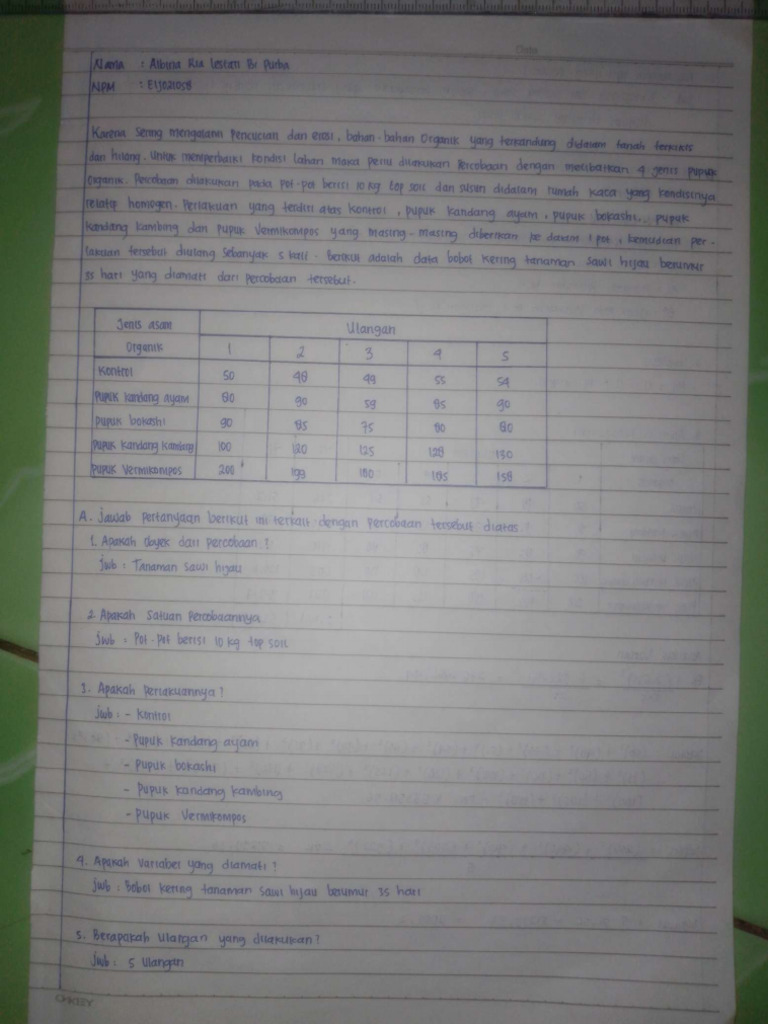 Date
Nama : Albina Ria Lestari Br Purba
NPM : E1J021058
Karena Sering mengalami Pencucian dan erosi, bahan-bahan Organik yang terkandung didalam tanah terkikis
dan hilang. Untuk memperbaiki kondisi lahan maka perlu dilakukan Percobaan dengan melibatkan 4 jenis pupuk
Organik. Percobaan dilakukan pada pot-pot berisi 10 kg top soil dan susun didalam rumah kaca yang kondisinya
relatif homogen. Perlakuan yang terdiri atas kontrol, pupuk kandang ayam, pupuk bokashi, pupuk
kandang kambing dan pupuk Vermikompos yang masing-masing diberikan ke dalam 1 pot, kemudian per-
lakuan tersebut diulang sebanyak 5 kali. Berikut adalah data bobot kering tanaman sawi hijau berumur
35 hari yang diamati dari percobaan tersebut.
Jenis asam Organik Ulangan
1 2 3 4 5
Kontrol 50 48 49 55 54
Pupuk kandang ayam 80 90 59 85 90
Pupuk bokashi 90 85 75 80 80
Pupuk kandang kambing 100 120 125 128 130
Pupuk Vermikompos 200 199 180 185 158
A. Jawab pertanyaan berikut ini terkait dengan percobaan tersebut diatas
1. Apakah Obyek dari percobaan ?
jwb : Tanaman sawi hijau
2 Apakah Satuan Percobaannya
jwb : Pot-pot berisi 10 kg top soil
3. Apakah Perlakuannya ?
jwb : - Kontrol
- Pupuk kandang ayam
- Pupuk bokashi
- Pupuk kandang kambing
- Pupuk Vermikompos
4. Apakah Variabel yang diamati ?
jwb : Bobot kering tanaman sawi hijau berumur 35 hari
5. Berapakah Ulangan yang dilakukan ?
jwb : 5 Ulangan